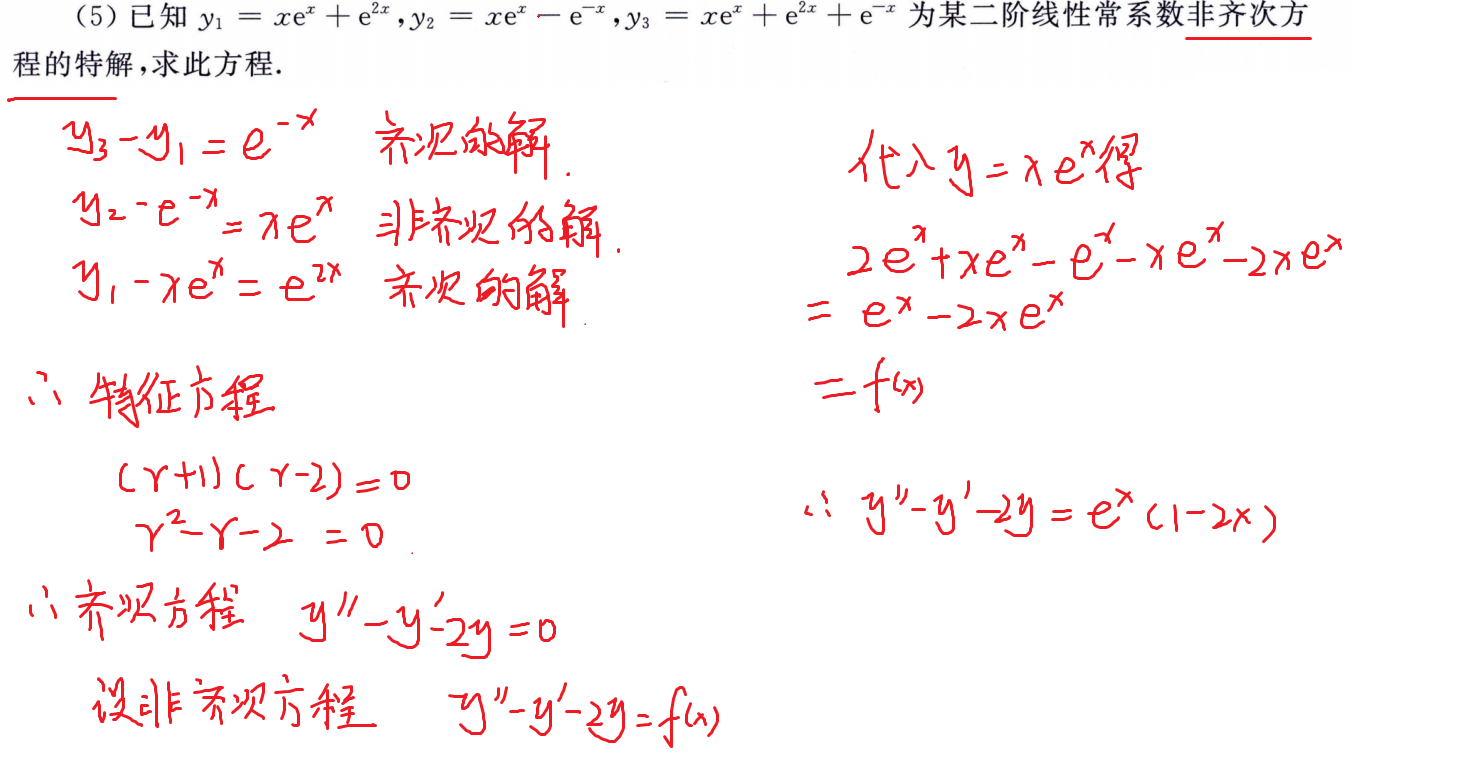 (5) 已知 y₁ = xeˣ + e²ˣ, y₂ = xeˣ − e⁻ˣ, y₃ = xeˣ + e²ˣ + e⁻ˣ 为某二阶线性常系数非齐次方
程的特解,求此方程.
y₃ − y₁ = e⁻ˣ 齐次的解.
y₂ − e⁻ˣ = xeˣ 非齐次的解.
y₁ − xeˣ = e²ˣ 齐次的解.
∴ 特征方程
(r+1)(r−2) = 0
r² − r − 2 = 0
∴ 齐次方程 y'' − y' − 2y = 0
设非齐次方程 y'' − y' − 2y = f(x)
代入 y = xeˣ 得
2eˣ + xeˣ − eˣ − xeˣ − 2xeˣ
= eˣ − 2xeˣ
= f(x)
∴ y'' − y' − 2y = eˣ(1−2x)